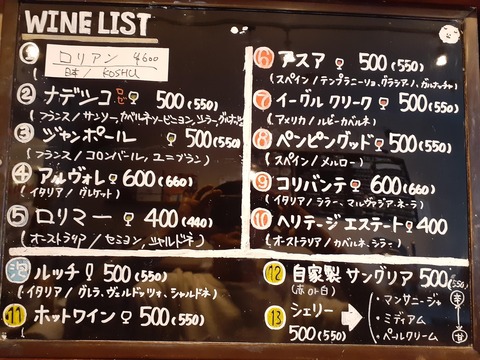 WINE LIST
① ロリアン ¥600
日本 / KOSHU
② ナデシコ ロゼ 500 (550)
(フランス / サンソー、カベルネソービニヨン、シラー、グルナッシュ
③ ジャンポール 500 (550)
(フランス / コロンバール、ユニブラン)
④ アルヴォレ 600 (660)
(イタリア / グレケット)
⑤ ロリマー 400 (440)
(オーストラリア / セミヨン、シャルドネ)
泡 ルッチ 500 (550)
(イタリア / グレラ、ヴェルドッツォ、シャルドネ)
⑪ ホットワイン 500 (550)
⑥ アスア 500 (550)
(スペイン / テンプラニーリョ、グラシアノ、ガルナッチャ)
⑦ イーグル クリーク 500 (550)
(アメリカ / ルビーカベルネ)
⑧ ペンピングッド 500 (550)
(スペイン / メルロー)
⑨ コリバンテ 600 (660)
(イタリア / シラー、マルヴァジア・ネーラ)
⑩ ヘリテージ エステート 400
(オーストラリア / カベルネ、シラー)
⑫ 自家製 サングリア 500 (550)
(赤 or 白)
⑬ シェリー
500 (550)
・マンサニージャ 辛
・ミディアム
・ペールクリーム 甘